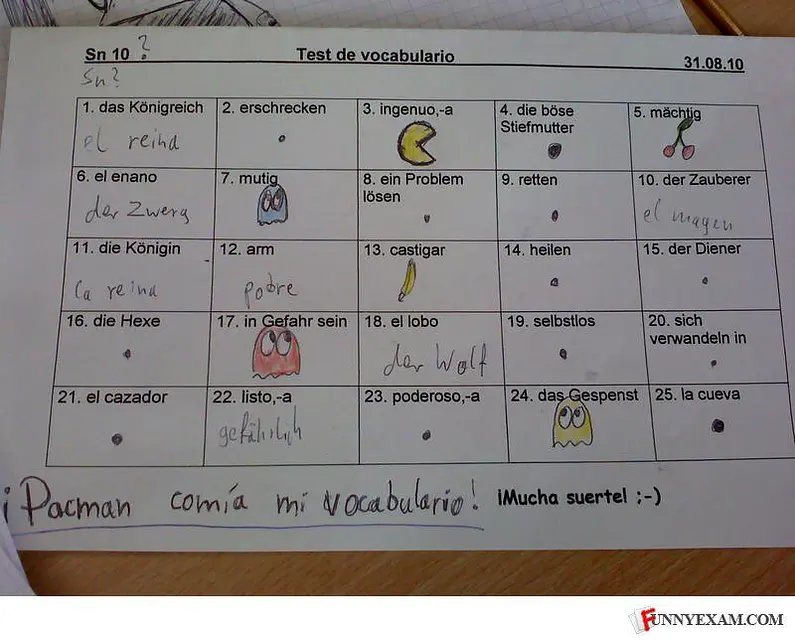 Sn 10 ? Test de vocabulario 31.08.10
Sn?
1. das Königreich 2. erschrecken 3. ingenuo,-a 4. die böse Stiefmutter 5. mächtig
el reina
6. el enano 7. mutig 8. ein Problem lösen 9. retten 10. der Zauberer
der Zwerg el magen
11. die Königin 12. arm 13. castigar 14. heilen 15. der Diener
la reina pobre
16. die Hexe 17. in Gefahr sein 18. el lobo 19. selbstlos 20. sich verwandeln in
der Wolf
21. el cazador 22. listo,-a 23. poderoso,-a 24. das Gespenst 25. la cueva
gefährlich
¡Pacman comía mi vocabulario! ¡Mucha suerte! ;-)
FUNNYEXAM.COM